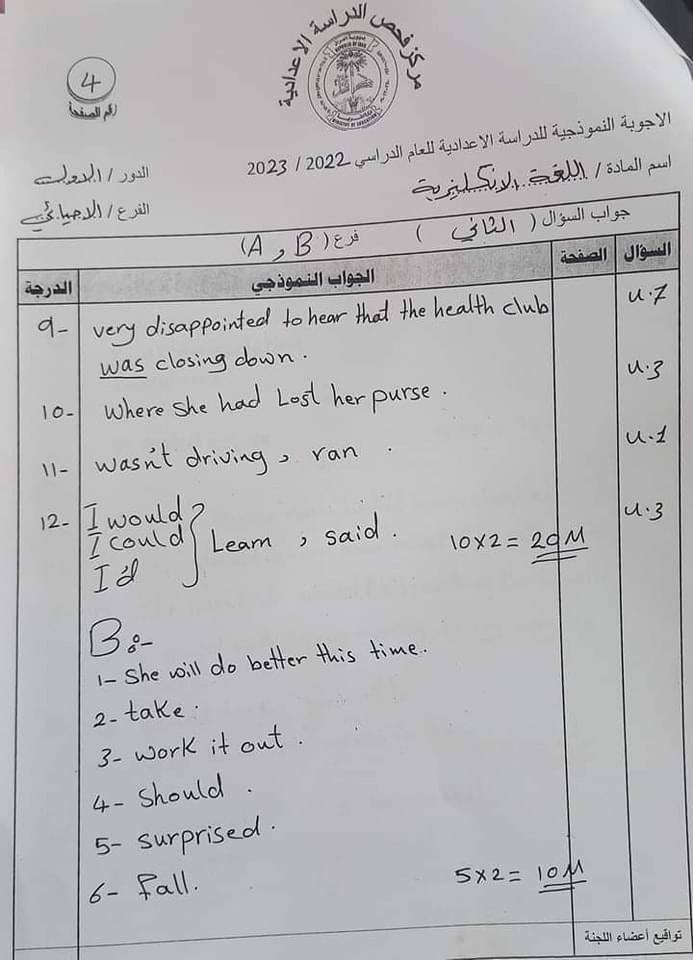 مركز فحص الدراسة الاعدادية
4
رقم الصفحة
الاجوبة النموذجية للدراسة الاعدادية للعام الدراسي 2022 / 2023
اسم المادة / اللغة الانكليزية
الدور /
الفرع / الاحيائي
جواب السؤال ( الثاني ) فرع (A , B)
السؤال الصفحة الجواب النموذجي الدرجة
9- very disappointed to hear that the health club U.7
was closing down.
10- Where she had Lost her purse. U.3
11- wasn't driving, ran. U.1
12- I would U.3
I could } Learn, said. 10x2 = 20M
I'd
B:-
1- She will do better this time..
2- take.
3- work it out.
4- Should.
5- surprised.
6- Fall. 5x2 = 10M
تواقيع أعضاء اللجنة